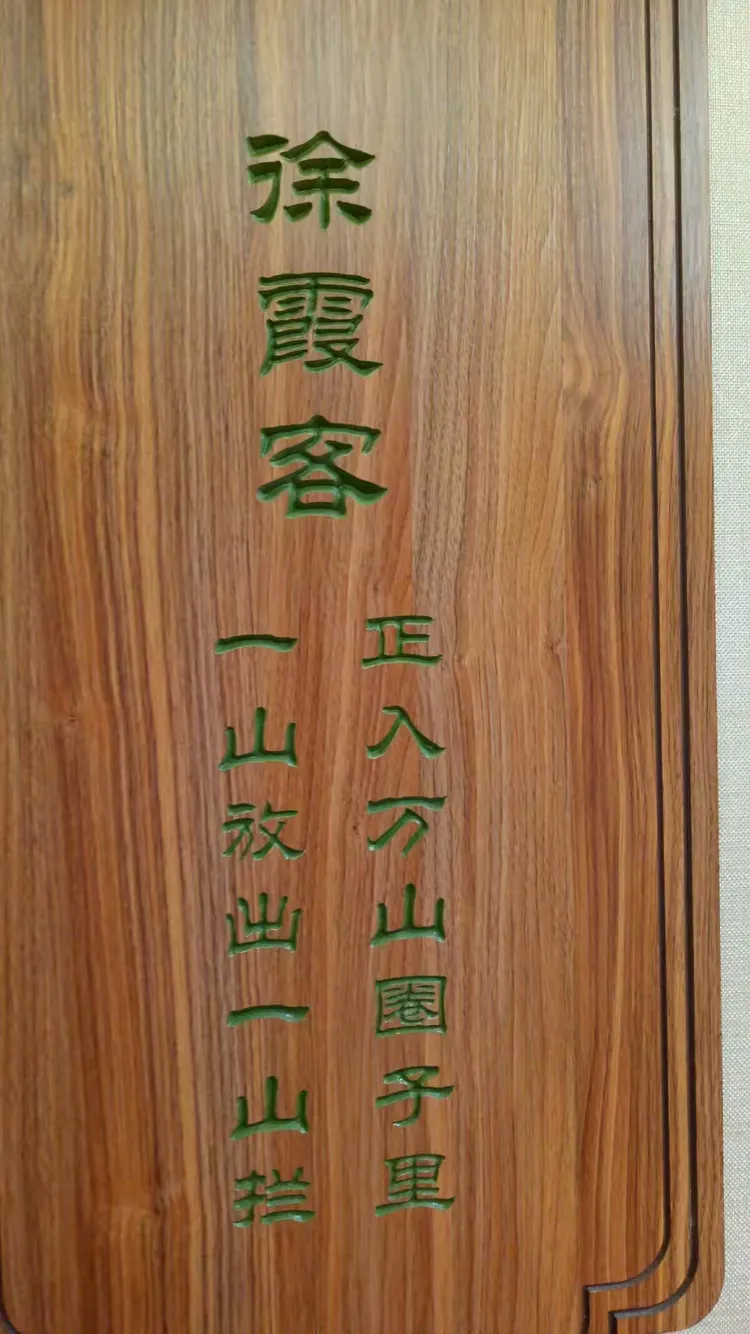 徐霞客
正入万山圈子里
一山放出一山拦